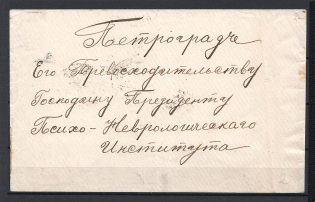 Петроградъ
Его Превосходительству
Господину Президенту
Психо-Неврологическаго
Института